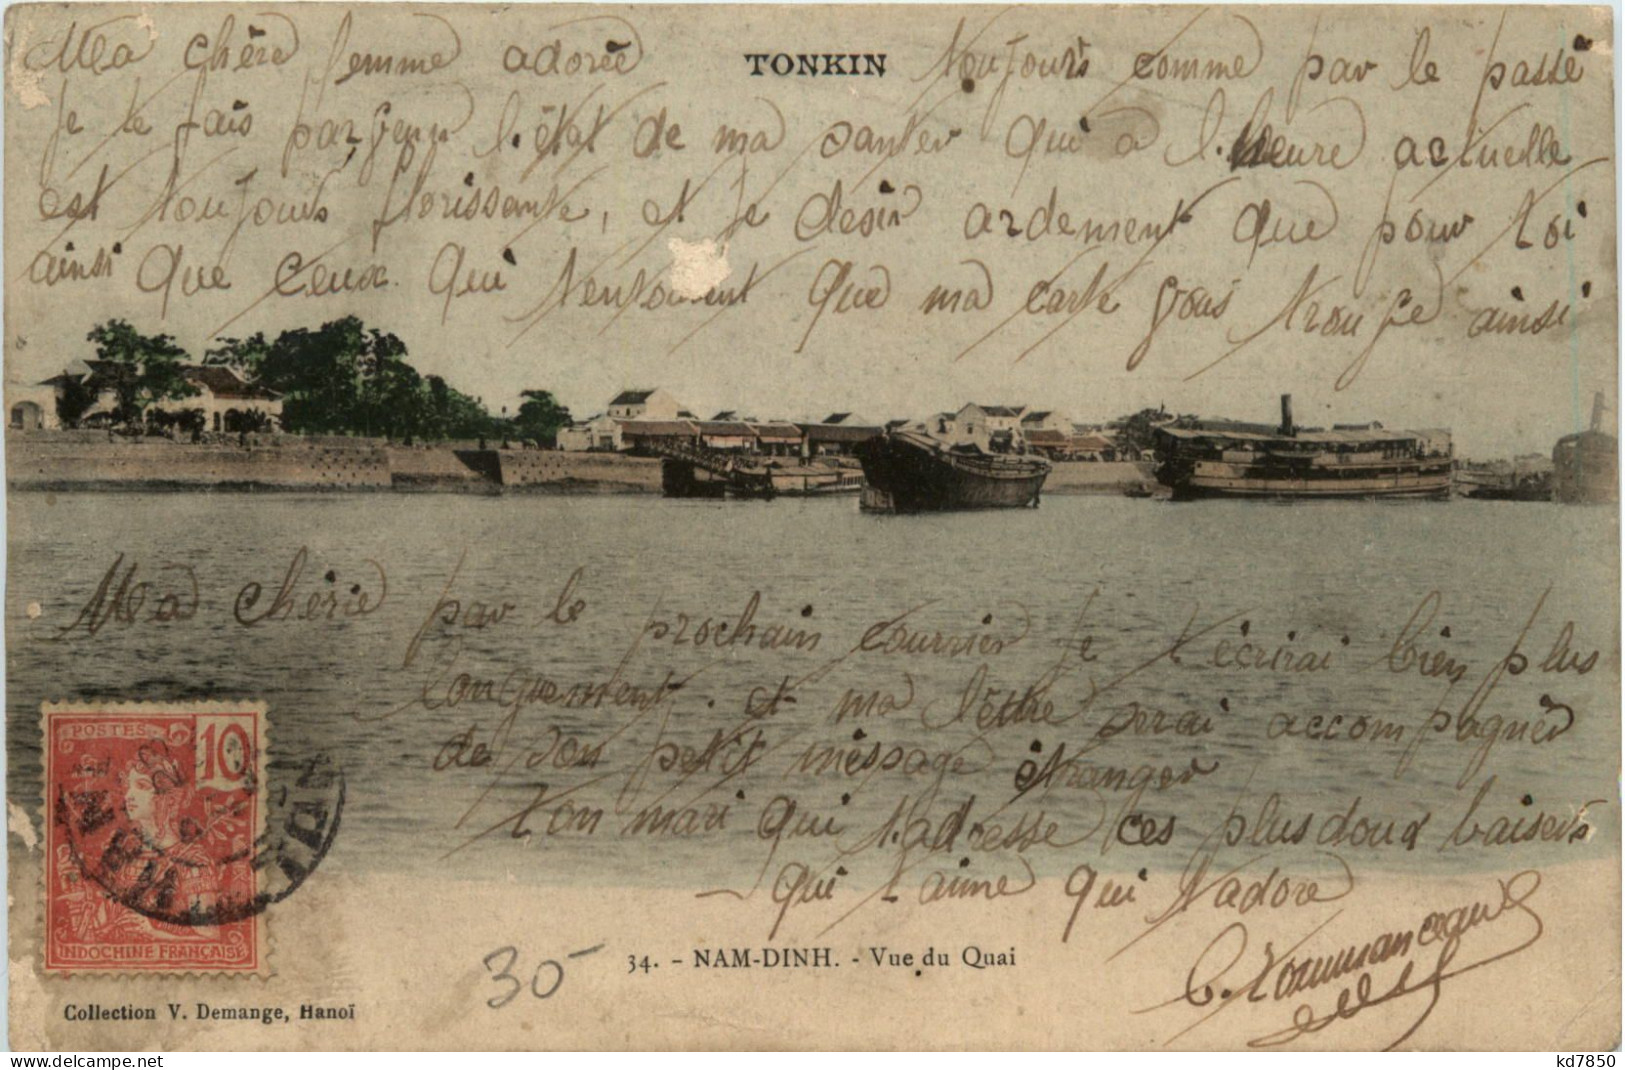 TONKIN
Ma chère femme adorée Toujours comme par le passé
Je te fais parvenir l'état de ma santer qui à l'heure actuelle
est toujours florissante, et je desir ardement que pour toi
ainsi que ceux qui t'entourent que ma carte vous trouve ainsi
Ma chérie par le prochain courrier je t'écrirai bien plus
longuement. et ma lettre serai accompagnér
de son petit méssage étranger
Ton mari qui t'adresse ces plus doux baisers
qui t'aime qui t'adore
POSTES 10
INDOCHINE FRANÇAISE
NAM-DINH
30-
34. - NAM-DINH. - Vue du Quai
Collection V. Demange, Hanoï
kd7850